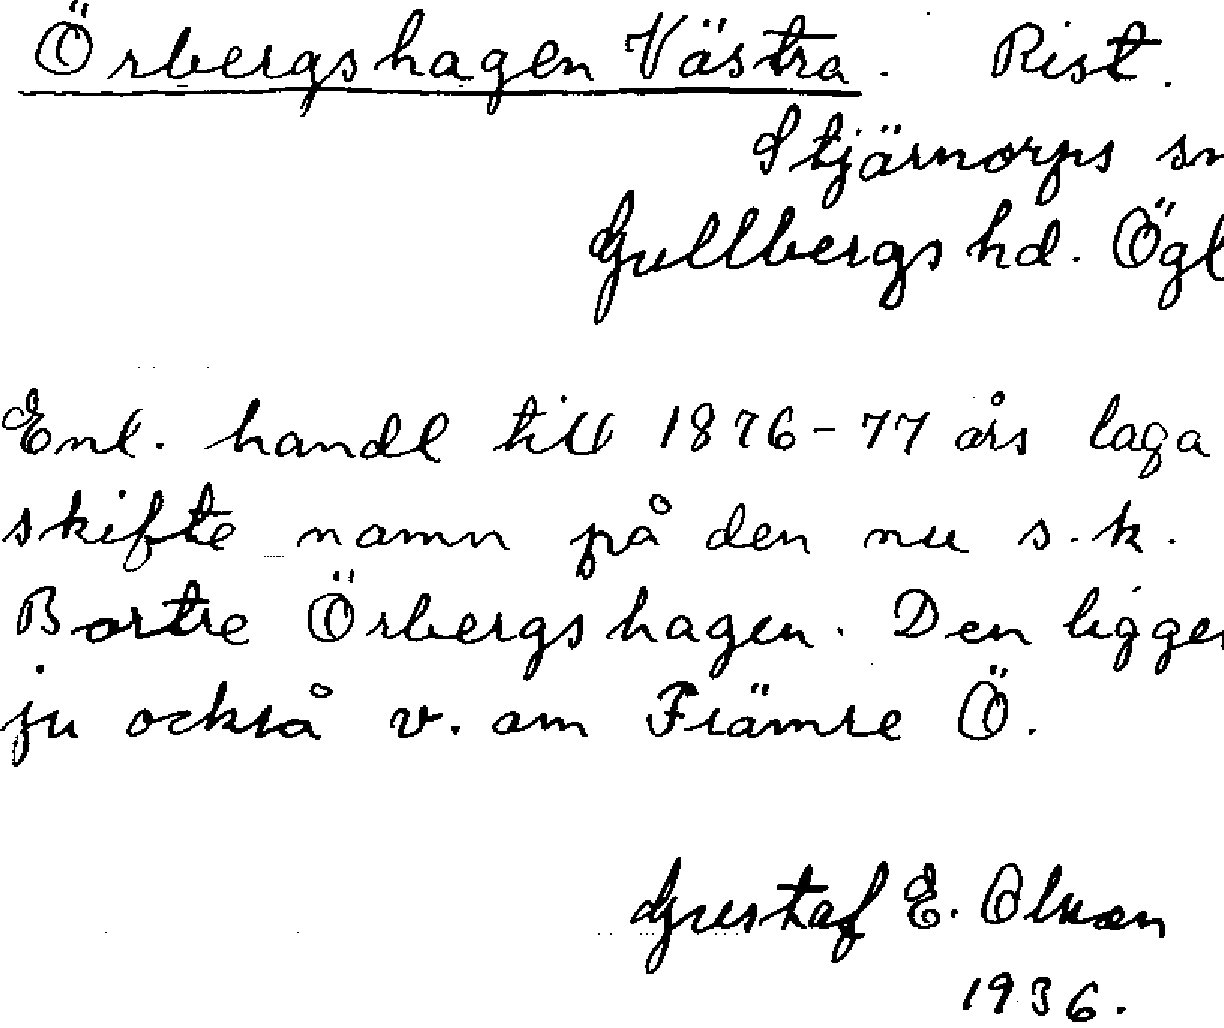 Örbergshagen Västra. Rist.
Stjärnorps sn
Gullbergs hd. Ögl
Enl. handl till 1876-77 års laga
skifte namn på den nu s.k.
Bortre Örbergshagen. Den ligger
ju också v. om Främre Ö.
Gustaf E. Olsson
1936.